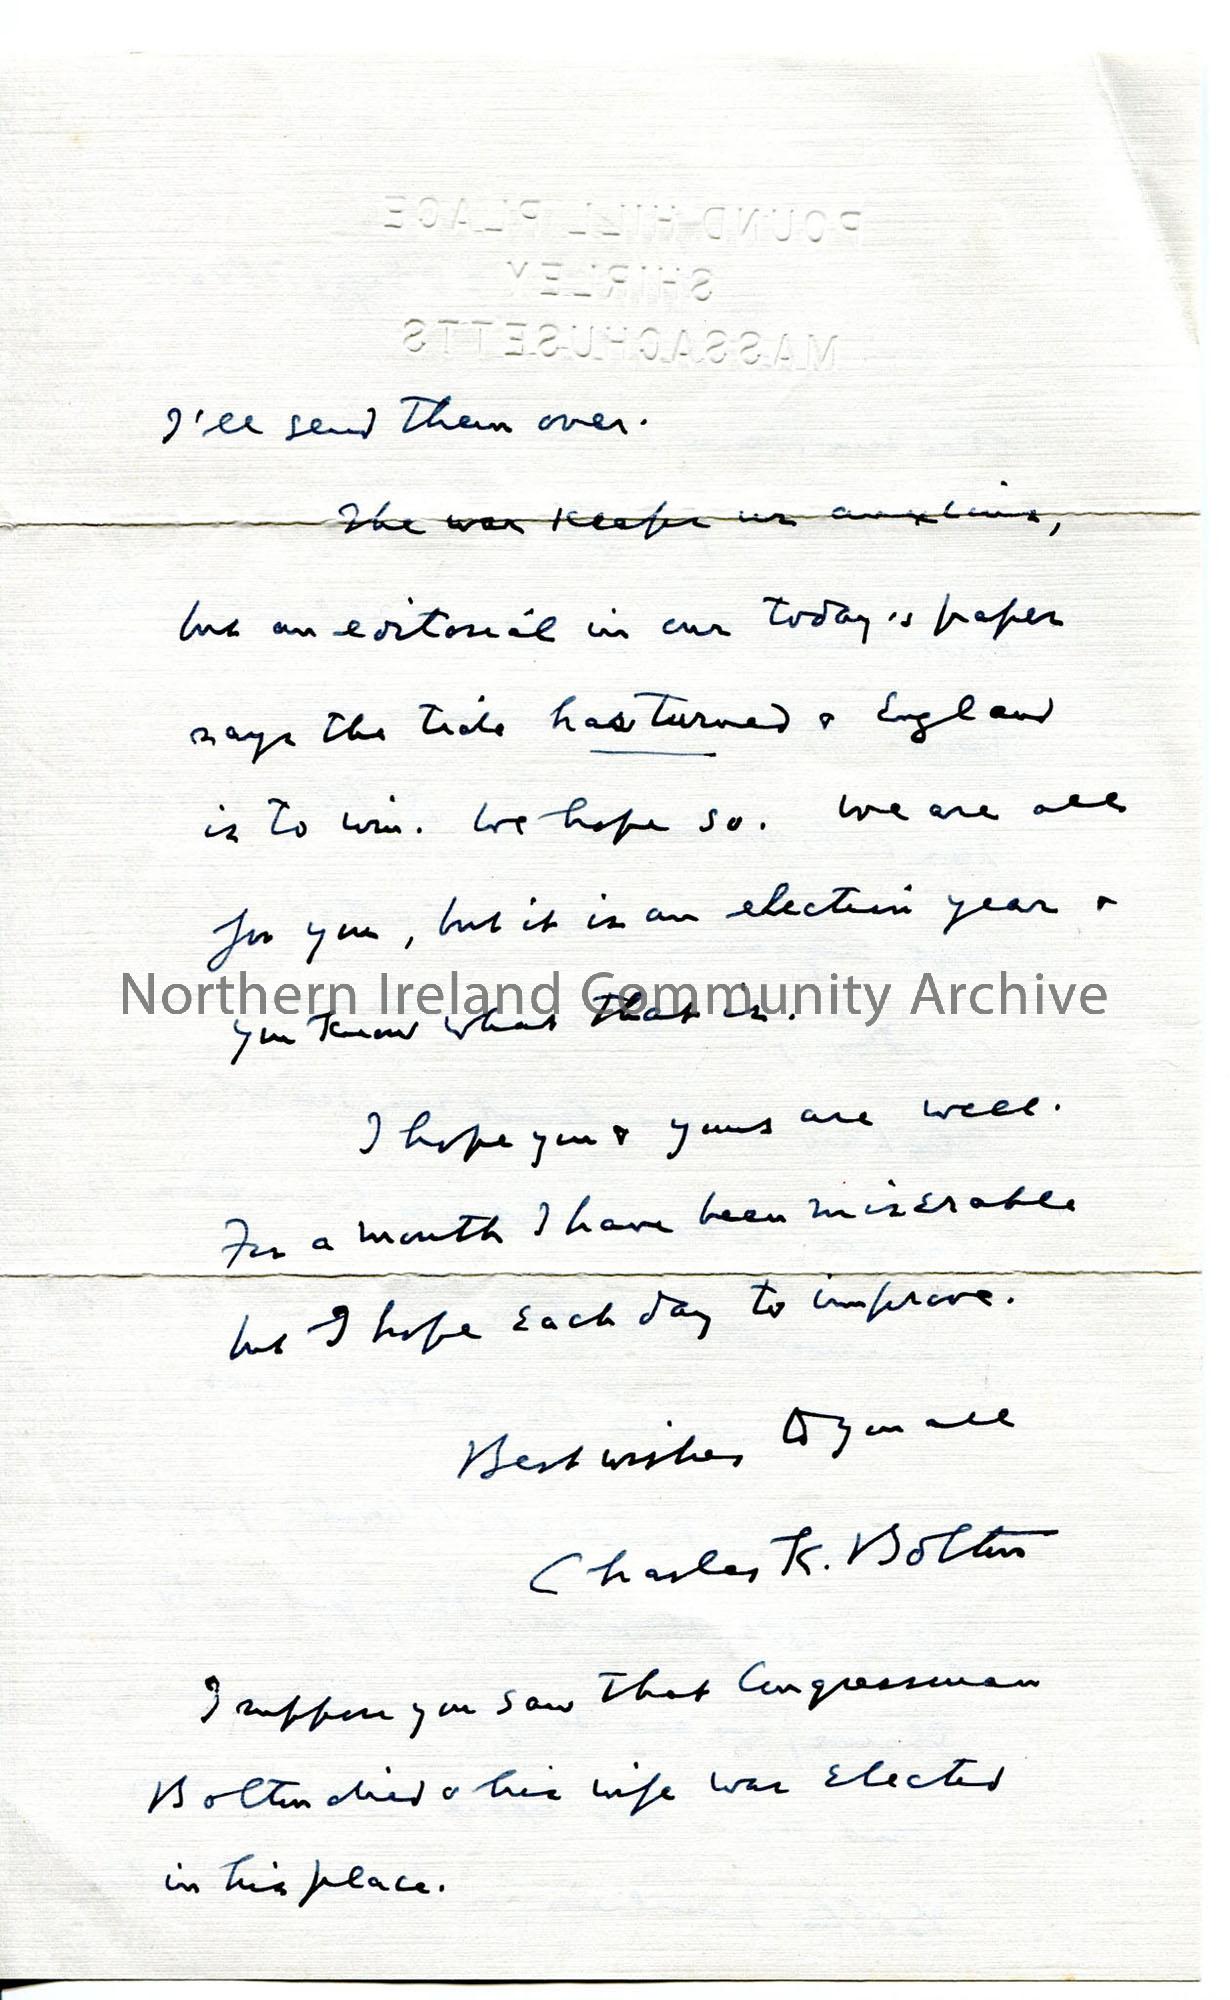 POUND HILL PLACE
SHIRLEY
MASSACHUSETTS
I'll send them over.
The war keeps us anxious,
but an editorial in our today's paper
says the tide has turned & England
is to win. We hope so. We are all
for you, but it is an election year &
Northern Ireland Community Archive
you know what that is.
I hope you & yours are well.
For a month I have been miserable
but I hope each day to improve.
Best wishes to you all
Charles K. Bolton
I suppose you saw that Congressman
Bolton died & his wife was elected
in his place.